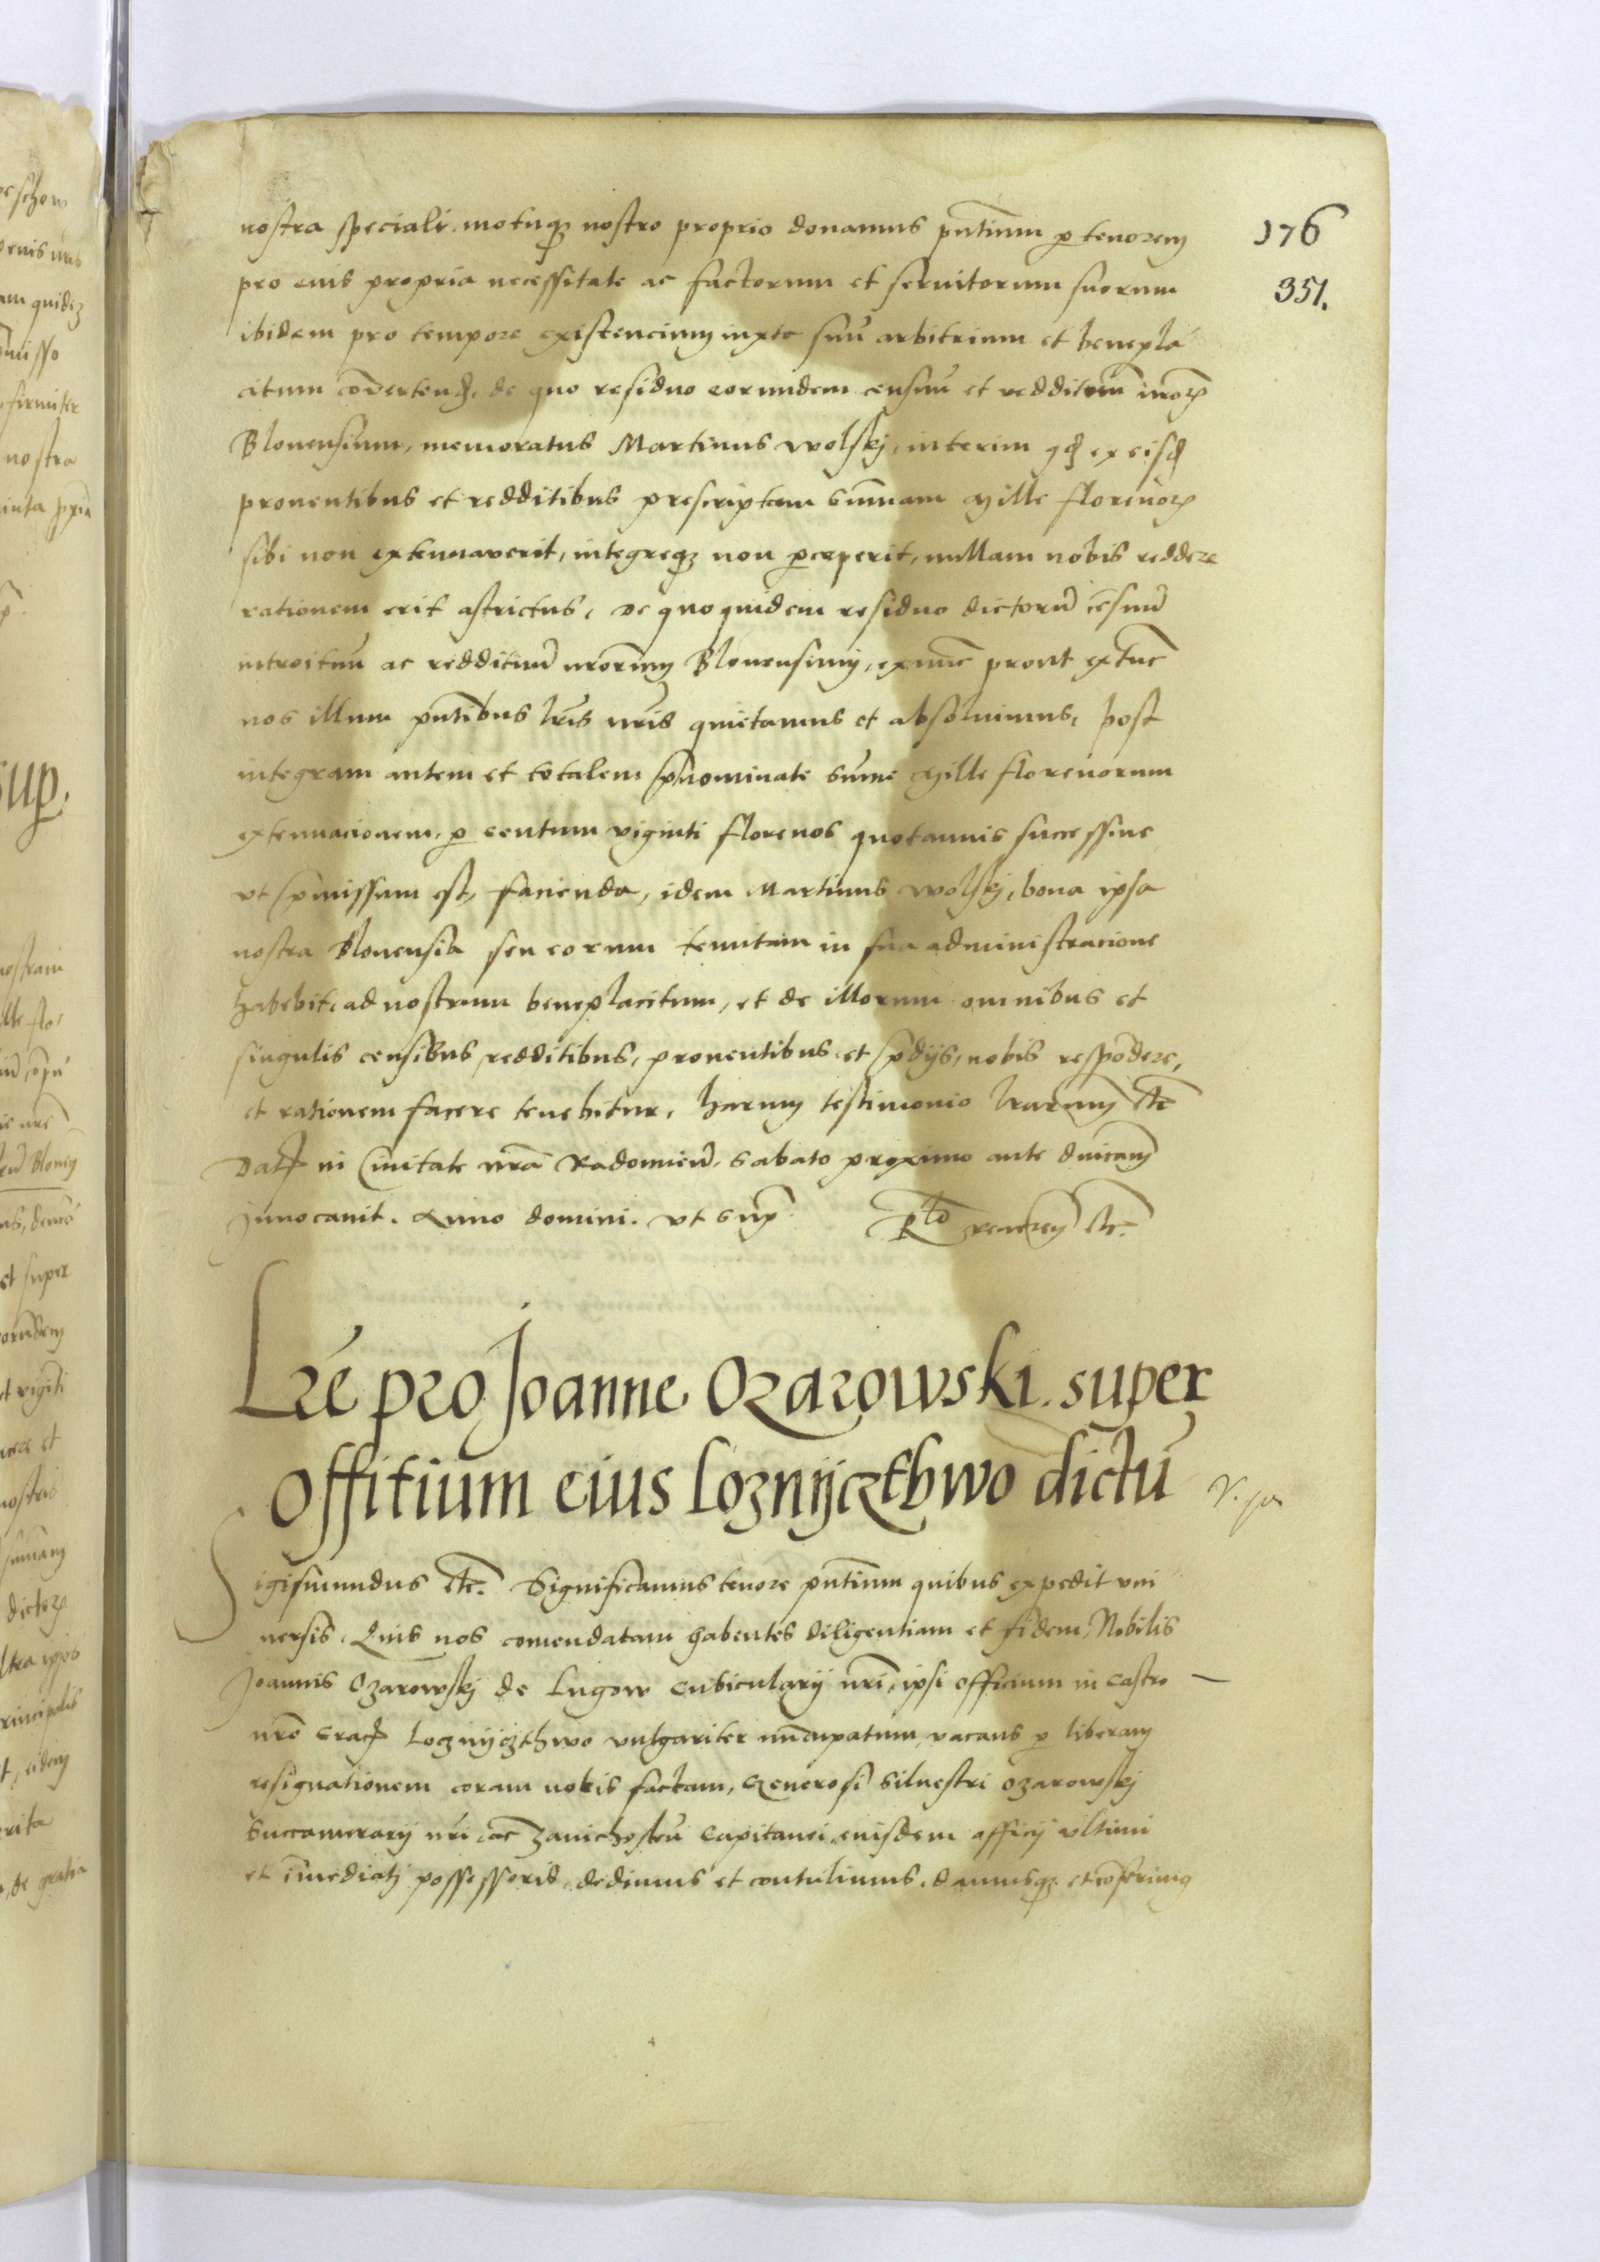 176
351.
nostra speciali motuq3 nostro proprio donamus pn̄tium p tenorem
pro eius propria necessitate ac factorum et seruitorum suorum
ibidem pro tempore existencium iuxta suū arbitrium et benepla
citum cōvertend, de quo residuo eorundem censuū et reddituum nrōr
Blonensium, memoratus Martinus wolskj, interim qd ex eisd
prouentibus et redditibus prescriptam sūmam Mille florenor
sibi non extenuaverit, integreq3 non pceperit, nullam nobis reddere
rationem erit astrictus, De quo quidem residuo dictorū cēsuū
introituū ac reddituū nrorum Blonensium, ex nūc prout ex tūc
nos illum pn̄tibus lrīs nrīs quietamus et absoluimus, post
integram autem et totalem pnominate sūme Mille florenorum
extenuacionem, p centum viginti florenos quotannis successiue
vt pmissum est, facienda, idem Martinus wolskj, bona ipsa
nostra Blonensia seu eorum tenutam in sua administracione
habebit, ad nostrum beneplacitum, et de illorum omnibus et
singulis censibus, redditibus, prouentibus et pdijs, nobis respōdere,
et rationem facere tenebitur, harum testimonio lrarum etc
Dat in Ciuitate nrā Radomien̄, sabato proximo ante dnicam
Inuocauit. Anno domini. vt supr
Rlō
etc.
Lrē pro Joanne Ozarowski. super
offitium eius Loznyczthwo dictū
Sigismundus etc. Significamus tenore pn̄tium quibus expedit vni
uersis, Quis nos comendatam habentes diligentiam et fidem, Nobilis
Joannis Ozarowskj de Lugow cubicularij nrī, ipsi officium in castro
nrō Crac Loznyczthwo vulgariter nūcupatum, vacans p liberam
resignationem coram nobis factam, Generosi Siluestri Ozarowskj
Succamerarij nrī ac Zawichosteū Capitanei, eiusdem officij vltimi
et īmediatj possessoris, dedimus et contulimus, damusq3 et cōferimus